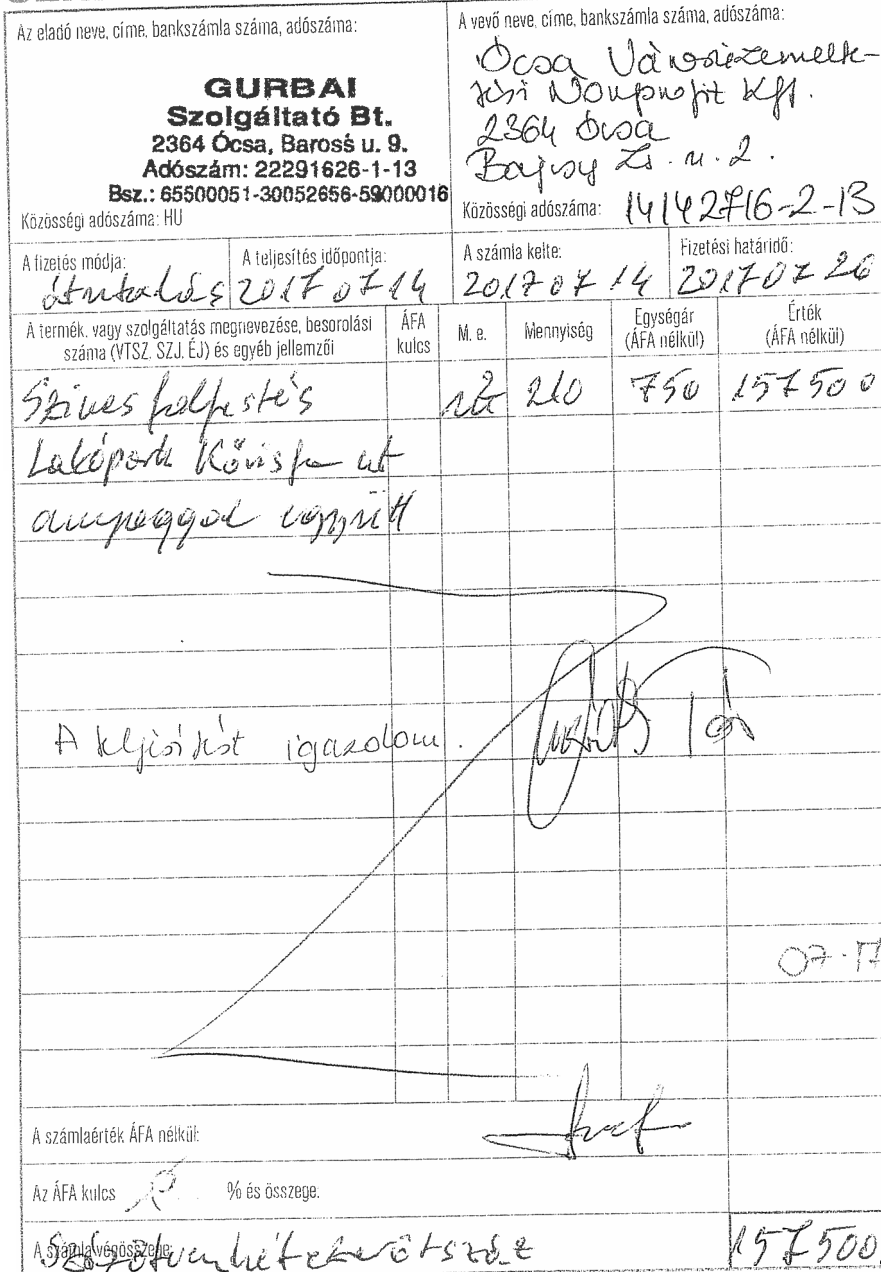 Az eladó neve, címe, bankszámla száma, adószáma:
GURBAI
Szolgáltató Bt.
2364 Ócsa, Baross u. 9.
Adószám: 22291626-1-13
Bsz.: 65500051-30052656-59000016
Közösségi adószáma: HU
A vevő neve, címe, bankszámla száma, adószáma:
Ócsa Városüzemelte-
tési Nonprofit Kft.
2364 Ócsa
Bajcsy Zs. u. 2.
Közösségi adószáma: 14142716-2-13
A fizetés módja:
átutalás
A teljesítés időpontja:
2017 07 14
A számla kelte:
2017 07 14
Fizetési határidő:
2017 07 26
A termék, vagy szolgáltatás megnevezése, besorolási
száma (VTSZ, SZJ, ÉJ) és egyéb jellemzői
ÁFA
kulcs
M. e.
Mennyiség
Egységár
(ÁFA nélkül)
Érték
(ÁFA nélkül)
felfestés 210 750 157500
Lakópark Kőrisfa út
anyaggal együtt
A teljesítést igazolom.
07-17
A számlaérték ÁFA nélkül:
Az ÁFA kulcs % és összege:
A számla végösszege:
Százötvenhétezerötszáz
157500